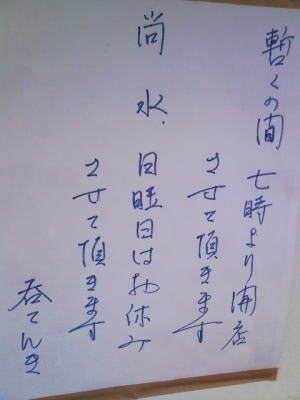 暫くの間 七時より開店
させて頂きます
尚 水、日曜日はお休み
させて頂きます
呑てんき